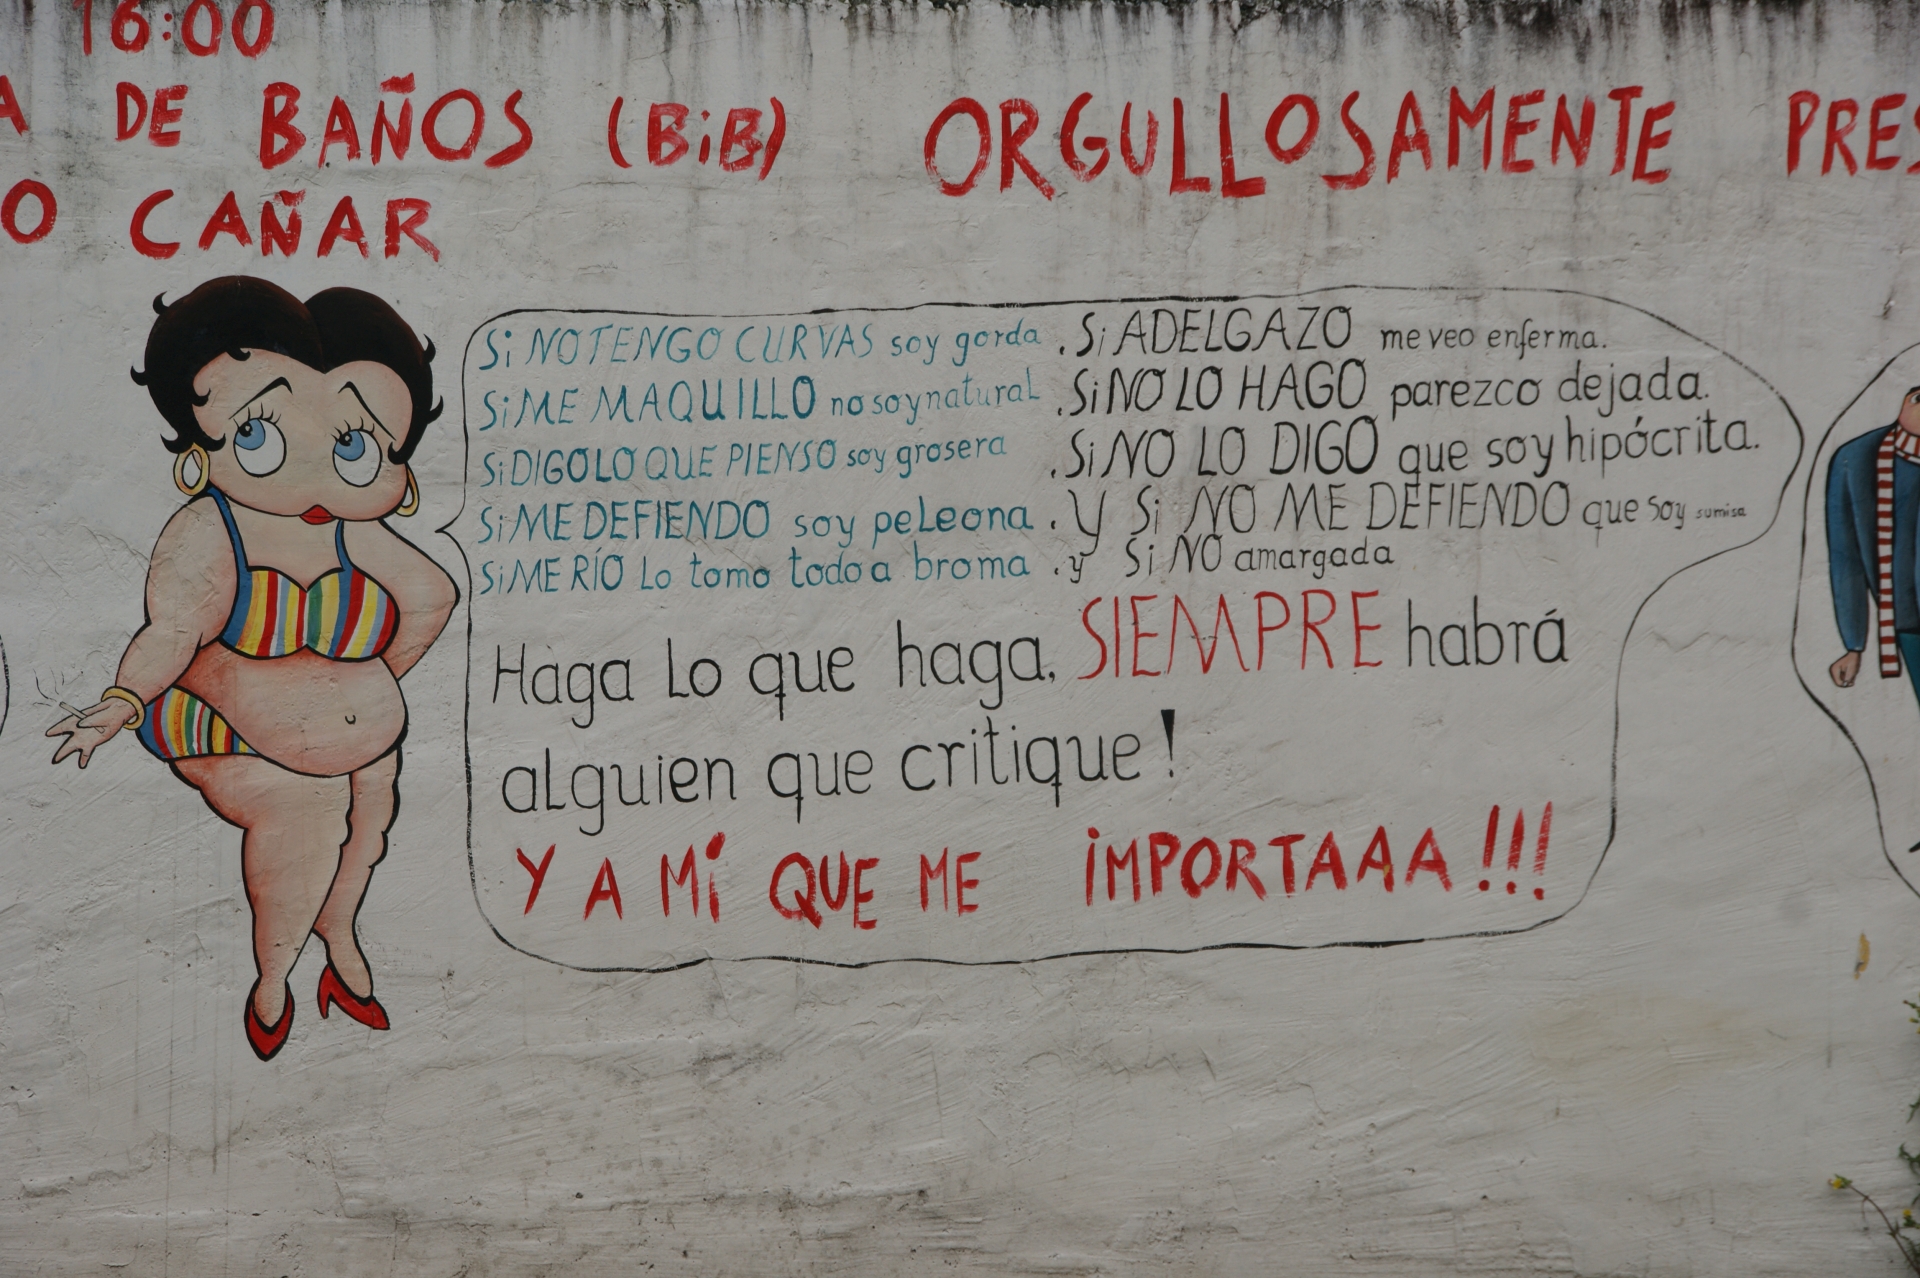 16:00
A DE BAÑOS (BiB) ORGULLOSAMENTE PRES
O CAÑAR
Si NO TENGO CURVAS soy gorda . Si ADELGAZO me veo enferma.
Si ME MAQUILLO no soy natural . Si NO LO HAGO parezco dejada.
Si DIGO LO QUE PIENSO soy grosera . Si NO LO DIGO que soy hipócrita.
Si ME DEFIENDO soy peleona . Y Si NO ME DEFIENDO que soy sumisa
Si ME RÍO Lo tomo todo a broma . y Si NO amargada
Haga Lo que haga, SIEMPRE habrá
alguien que critique!
Y A Mí QUE ME iMPORTAAA!!!